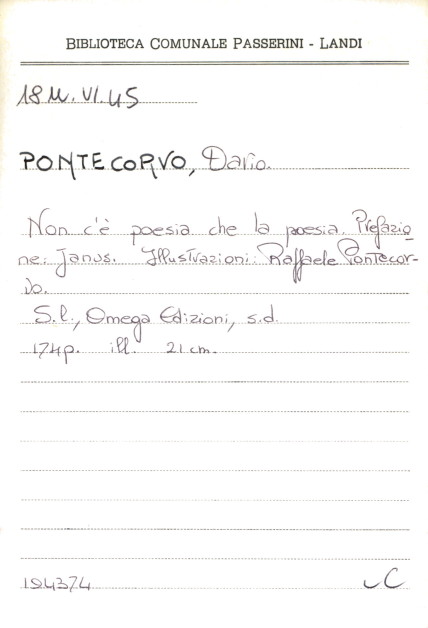 BIBLIOTECA COMUNALE PASSERINI - LANDI
18 M. VI. 45
PONTECORVO, Dario.
Non c'è poesia che la poesia. Prefazio
ne: Janus. Illustrazioni: Raffaele Pontecor-
vo.
S.l., Omega Edizioni, s.d.
174p. ill. 21 cm.
194374 C